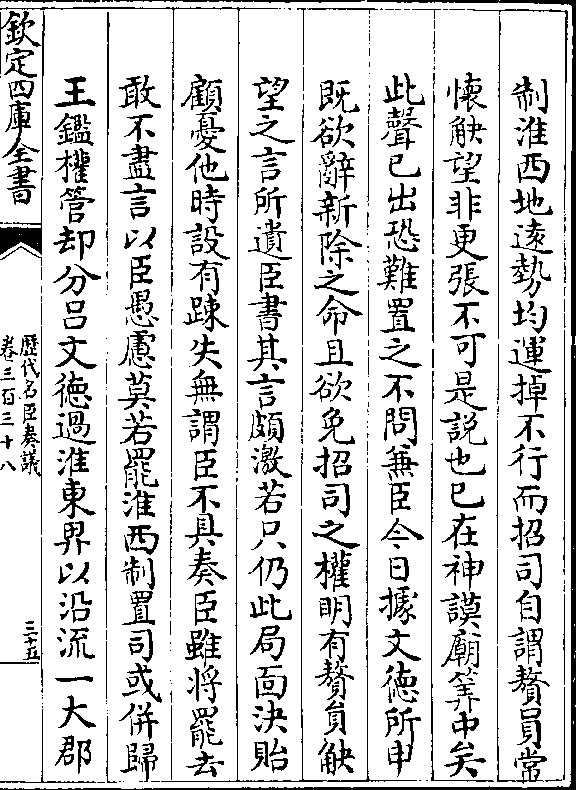 制淮西地遠勢均運掉不行而招司自謂贅員常
懷觖望非更張不可是説也已在神謨廟筭中矣
此聲已出恐難置之不問兼臣今日據文徳所申
既欲辭新除之命且欲免招司之權明有贅員觖
望之言所遺臣書其言頗激若只仍此局面決貽
顧憂他時設有踈失無謂臣不具奏臣雖將罷去
敢不盡言以臣愚慮莫若罷淮西制置司或併歸
王鑑權管却分吕文徳過淮東界以沿流一大郡
欽定四庫全書
歴代名臣奏議
卷三百三十八
三十五